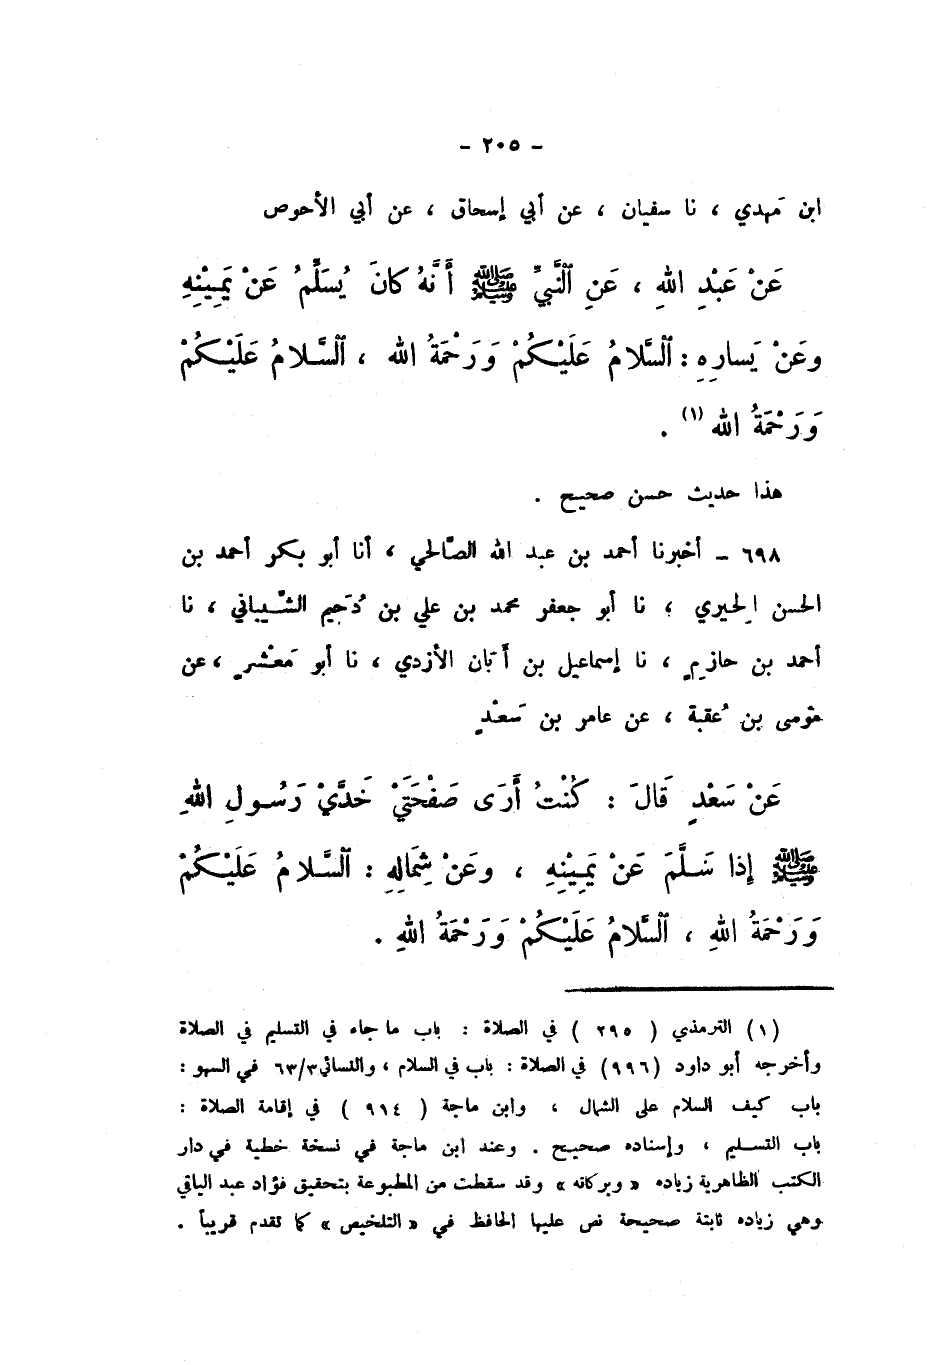 - ٢٠٥ -
ابن مَهدي ، نا سفيان ، عن أبي إسحاق ، عن أبي الأحوص
عَنْ عَبْدِ اللهِ ، عَنِ ٱلنَّبيِّ ﷺ أَنَّهُ كانَ يُسَلِّمُ عَنْ يَمِيْنِهِ
وعَنْ يَسارِهِ : ٱلسَّلامُ عَلَيْكُمْ وَرَحْمَةُ الله ، ٱلسَّلامُ عَلَيْكُمْ
وَرَحْمَةُ الله (١) .
هذا حديث حسن صحيح .
٦٩٨ – أخبرنا أحمد بن عبد الله الصّالحي ، أنا أبو بكر أحمد بن
الحسن الحِيري ، نا أبو جعفر محمد بن علي بن دُحَيم الشّيباني ، نا
أحمد بن حازِمٍ ، نا إسماعيل بن أَبَان الأزدي ، نا أبو مَعْشرٍ ، عن
موسى بن عُقبة ، عن عامر بن سَعْدٍ
عَنْ سَعْدٍ قَالَ : كُنْتُ أَرَى صَفْحَتَيْ خَدَّيْ رَسُولِ اللهِ
ﷺ إِذا سَلَّمَ عَنْ يَمِيْنِهِ ، وعَنْ شِمَالِهِ : ٱلسَّلامُ عَلَيْكُمْ
وَرَحْمَةُ اللهِ ، ٱلسَّلامُ عَلَيْكُمْ وَرَحْمَةُ اللهِ .
(١) الترمذي ( ٢٩٥ ) في الصلاة : باب ما جاء في التسليم في الصلاة
وأخرجه أبو داود (٩٩٦) في الصلاة : باب في السلام ، والنسائي ٦٣/٣ في السهو :
باب كيف السلام على الشمال ، وابن ماجة ( ٩١٤ ) في إقامة الصلاة :
باب التسليم ، وإسناده صحيح . وعند ابن ماجة في نسخة خطية في دار
الكتب الظاهرية زياده « وبركاته » وقد سقطت من المطبوعة بتحقيق فؤاد عبد الباقي
وهي زياده ثابتة صحيحة نص عليها الحافظ في « التلخيص » كما تقدم قريباً .